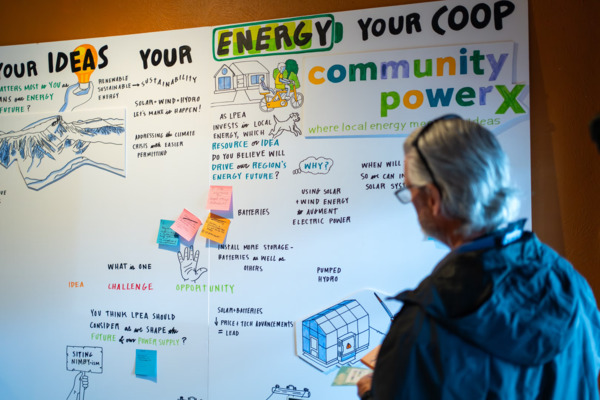 YOUR IDEAS YOUR ENERGY YOUR COOP
MATTERS MOST to YOU as
ENERGY
FUTURE?
RENEWABLE
SUSTAINABLE
ENERGY
→ SUSTAINABILITY
SOLAR + WIND + HYDRO
LET'S MAKE it HAPPEN!
ADDRESSING the CLIMATE
CRISIS with EASIER
PERMITTING
AS LPEA
INVESTS in LOCAL
ENERGY, WHICH
RESOURCE or IDEA
DO YOU BELIEVE WILL
DRIVE our REGION'S
ENERGY FUTURE?
community
powerx
where local energy meets ideas
WHY?
WHEN WILL
SO we CAN
SOLAR
USING SOLAR
+ WIND ENERGY
to AUGMENT
ELECTRIC POWER
BATTERIES
INSTALL MORE STORAGE -
BATTERIES as WELL as
OTHERS
PUMPED
HYDRO
WHAT is ONE
IDEA CHALLENGE OPPORTUNITY
YOU THINK LPEA SHOULD
CONSIDER as we SHAPE the
FUTURE of our POWER SUPPLY?
SOLAR + BATTERIES
↓ PRICE + TECH ADVANCEMENTS
= LEAD
SITING
NIMBY-ism